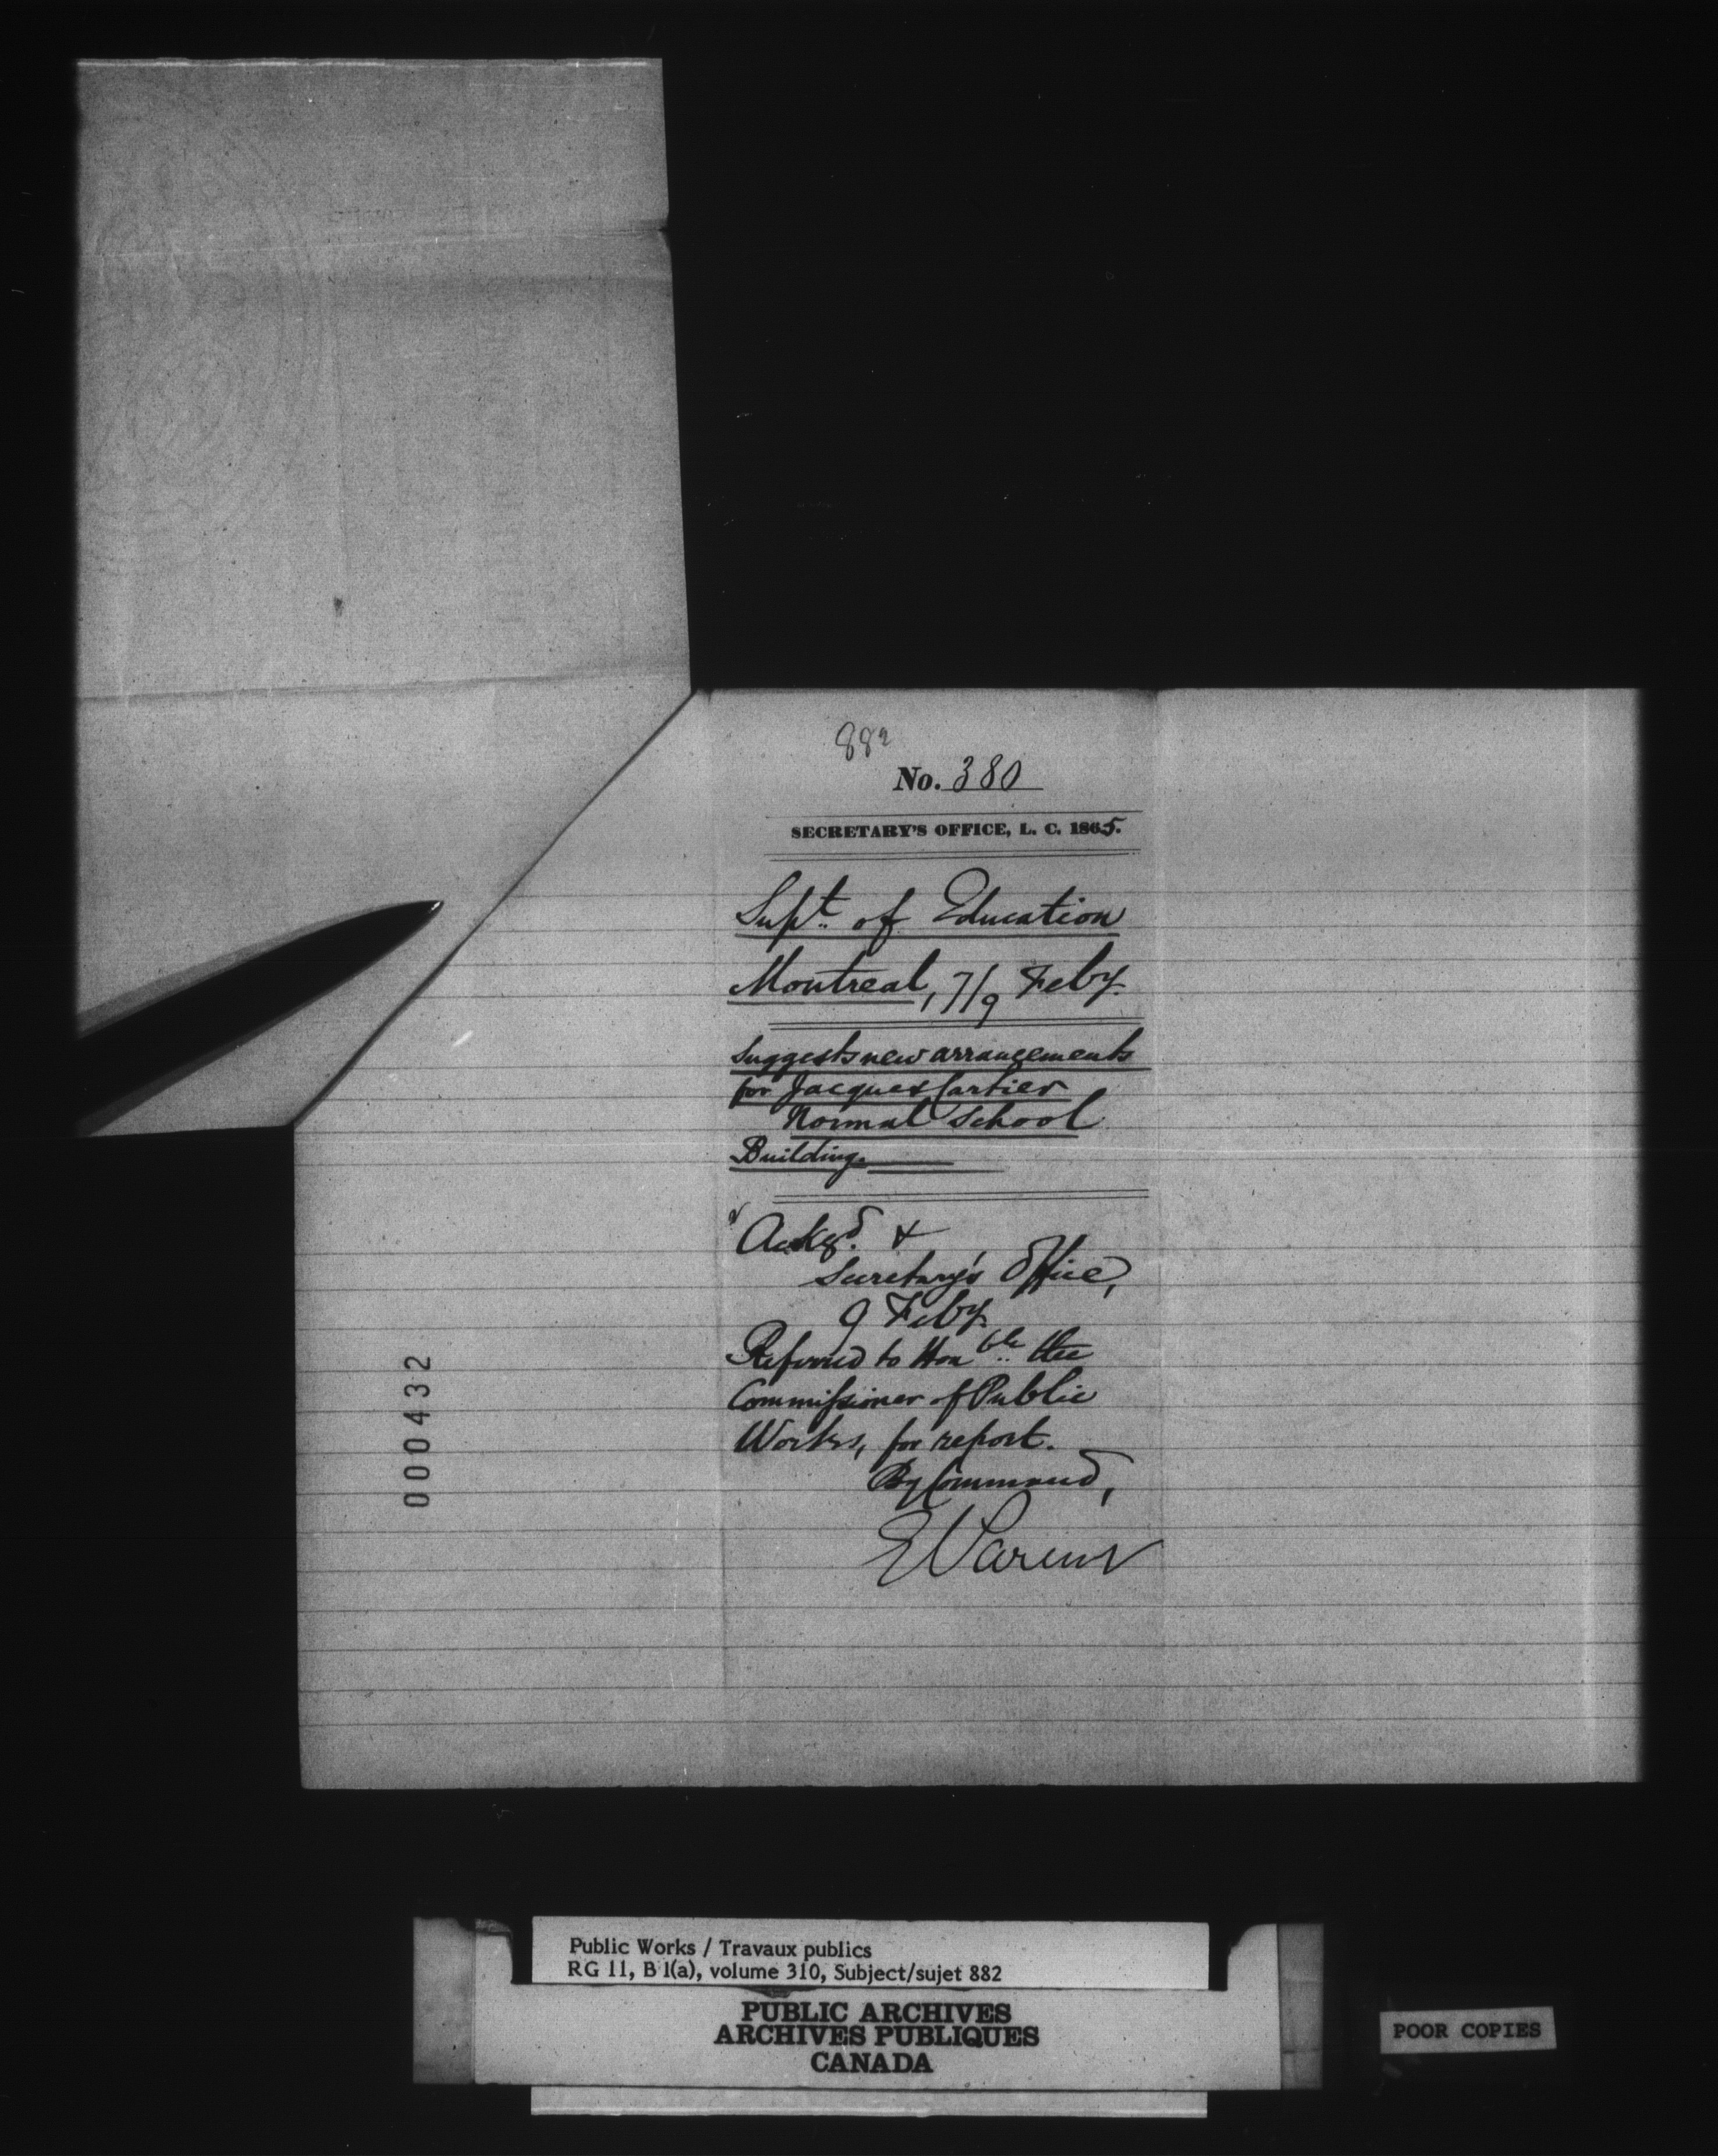 882
No. 380
SECRETARY'S OFFICE, L. C. 1865.
Supt. of Education
Montreal, 7/9 Feby.
Suggests new arrangements
for Jacques Cartier
Normal School
Building.
Ackgd. &
Secretary's Office,
9 Feby.
Referred to Honble the
Commissioner of Public
Works, for report.
By Command,
E Parent
000432
Public Works / Travaux publics
RG 11, B 1(a), volume 310, Subject/sujet 882
PUBLIC ARCHIVES
ARCHIVES PUBLIQUES
CANADA
POOR COPIES